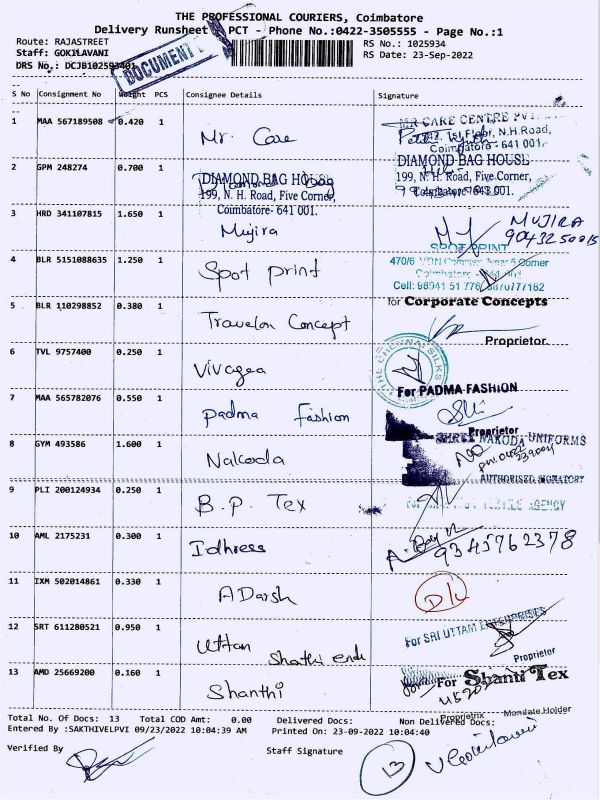 THE PROFESSIONAL COURIERS, Coimbatore
Delivery Runsheet PCT - Phone No.:0422-3505555 - Page No.:1
Route: RAJASTREET
RS No.: 1025934
Staff: GOKILAVANI
RS Date: 23-Sep-2022
DRS No.: DCJB102593401
DOCUMENT
S No Consignment No Weight PCS Consignee Details Signature
1 MAA 567189508 0.420 1 Mr. Care
MR CARE CENTRE PVT
1st Floor, N.H.Road,
Coimbatore - 641 001.
2 GPM 248274 0.700 1 Diamond Bag
DIAMOND BAG HOUSE
199, N. H. Road, Five Corner,
Coimbatore- 641 001.
DIAMOND BAG HOUSE
199, N. H. Road, Five Corner,
Coimbatore- 641 001.
3 HRD 341107815 1.650 1 Mujira
MUJIRA
9043250015
4 BLR 5151088635 1.250 1 Spot print
SPOT PRINT
470/6 Complex Near 5 Corner
Coimbatore
Cell: 98941 51776
5 BLR 110298852 0.380 1 Travelon Concept
for Corporate Concepts
Proprietor.
6 TVL 9757400 0.250 1 Vivagaa
THE CHENNAI SILKS
7 MAA 565782076 0.550 1 Padma Fashion
For PADMA FASHION
Proprietor
8 GYM 493586 1.600 1 Nakoda
SHREE NAKODA UNIFORMS
AUTHORISED SIGNATORY
9 PLI 200124934 0.250 1 B.P. Tex
AGENCY
10 AML 2175231 0.300 1 Idhress
9345762378
11 IXM 502014861 0.330 1 ADarsh
12 SRT 611280521 0.950 1 Uttam Shathi
For SRI UTTAM ENTERPRISES
Proprietor
13 AMD 25669200 0.160 1 Shanthi
For Shanti Tex
Proprietrix Mandate Holder
Total No. Of Docs: 13 Total COD Amt: 0.00 Delivered Docs: Non Delivered Docs:
Entered By :SAKTHIVELPVI 09/23/2022 10:04:39 AM Printed On: 23-09-2022 10:04:40
Verified By Staff Signature
13